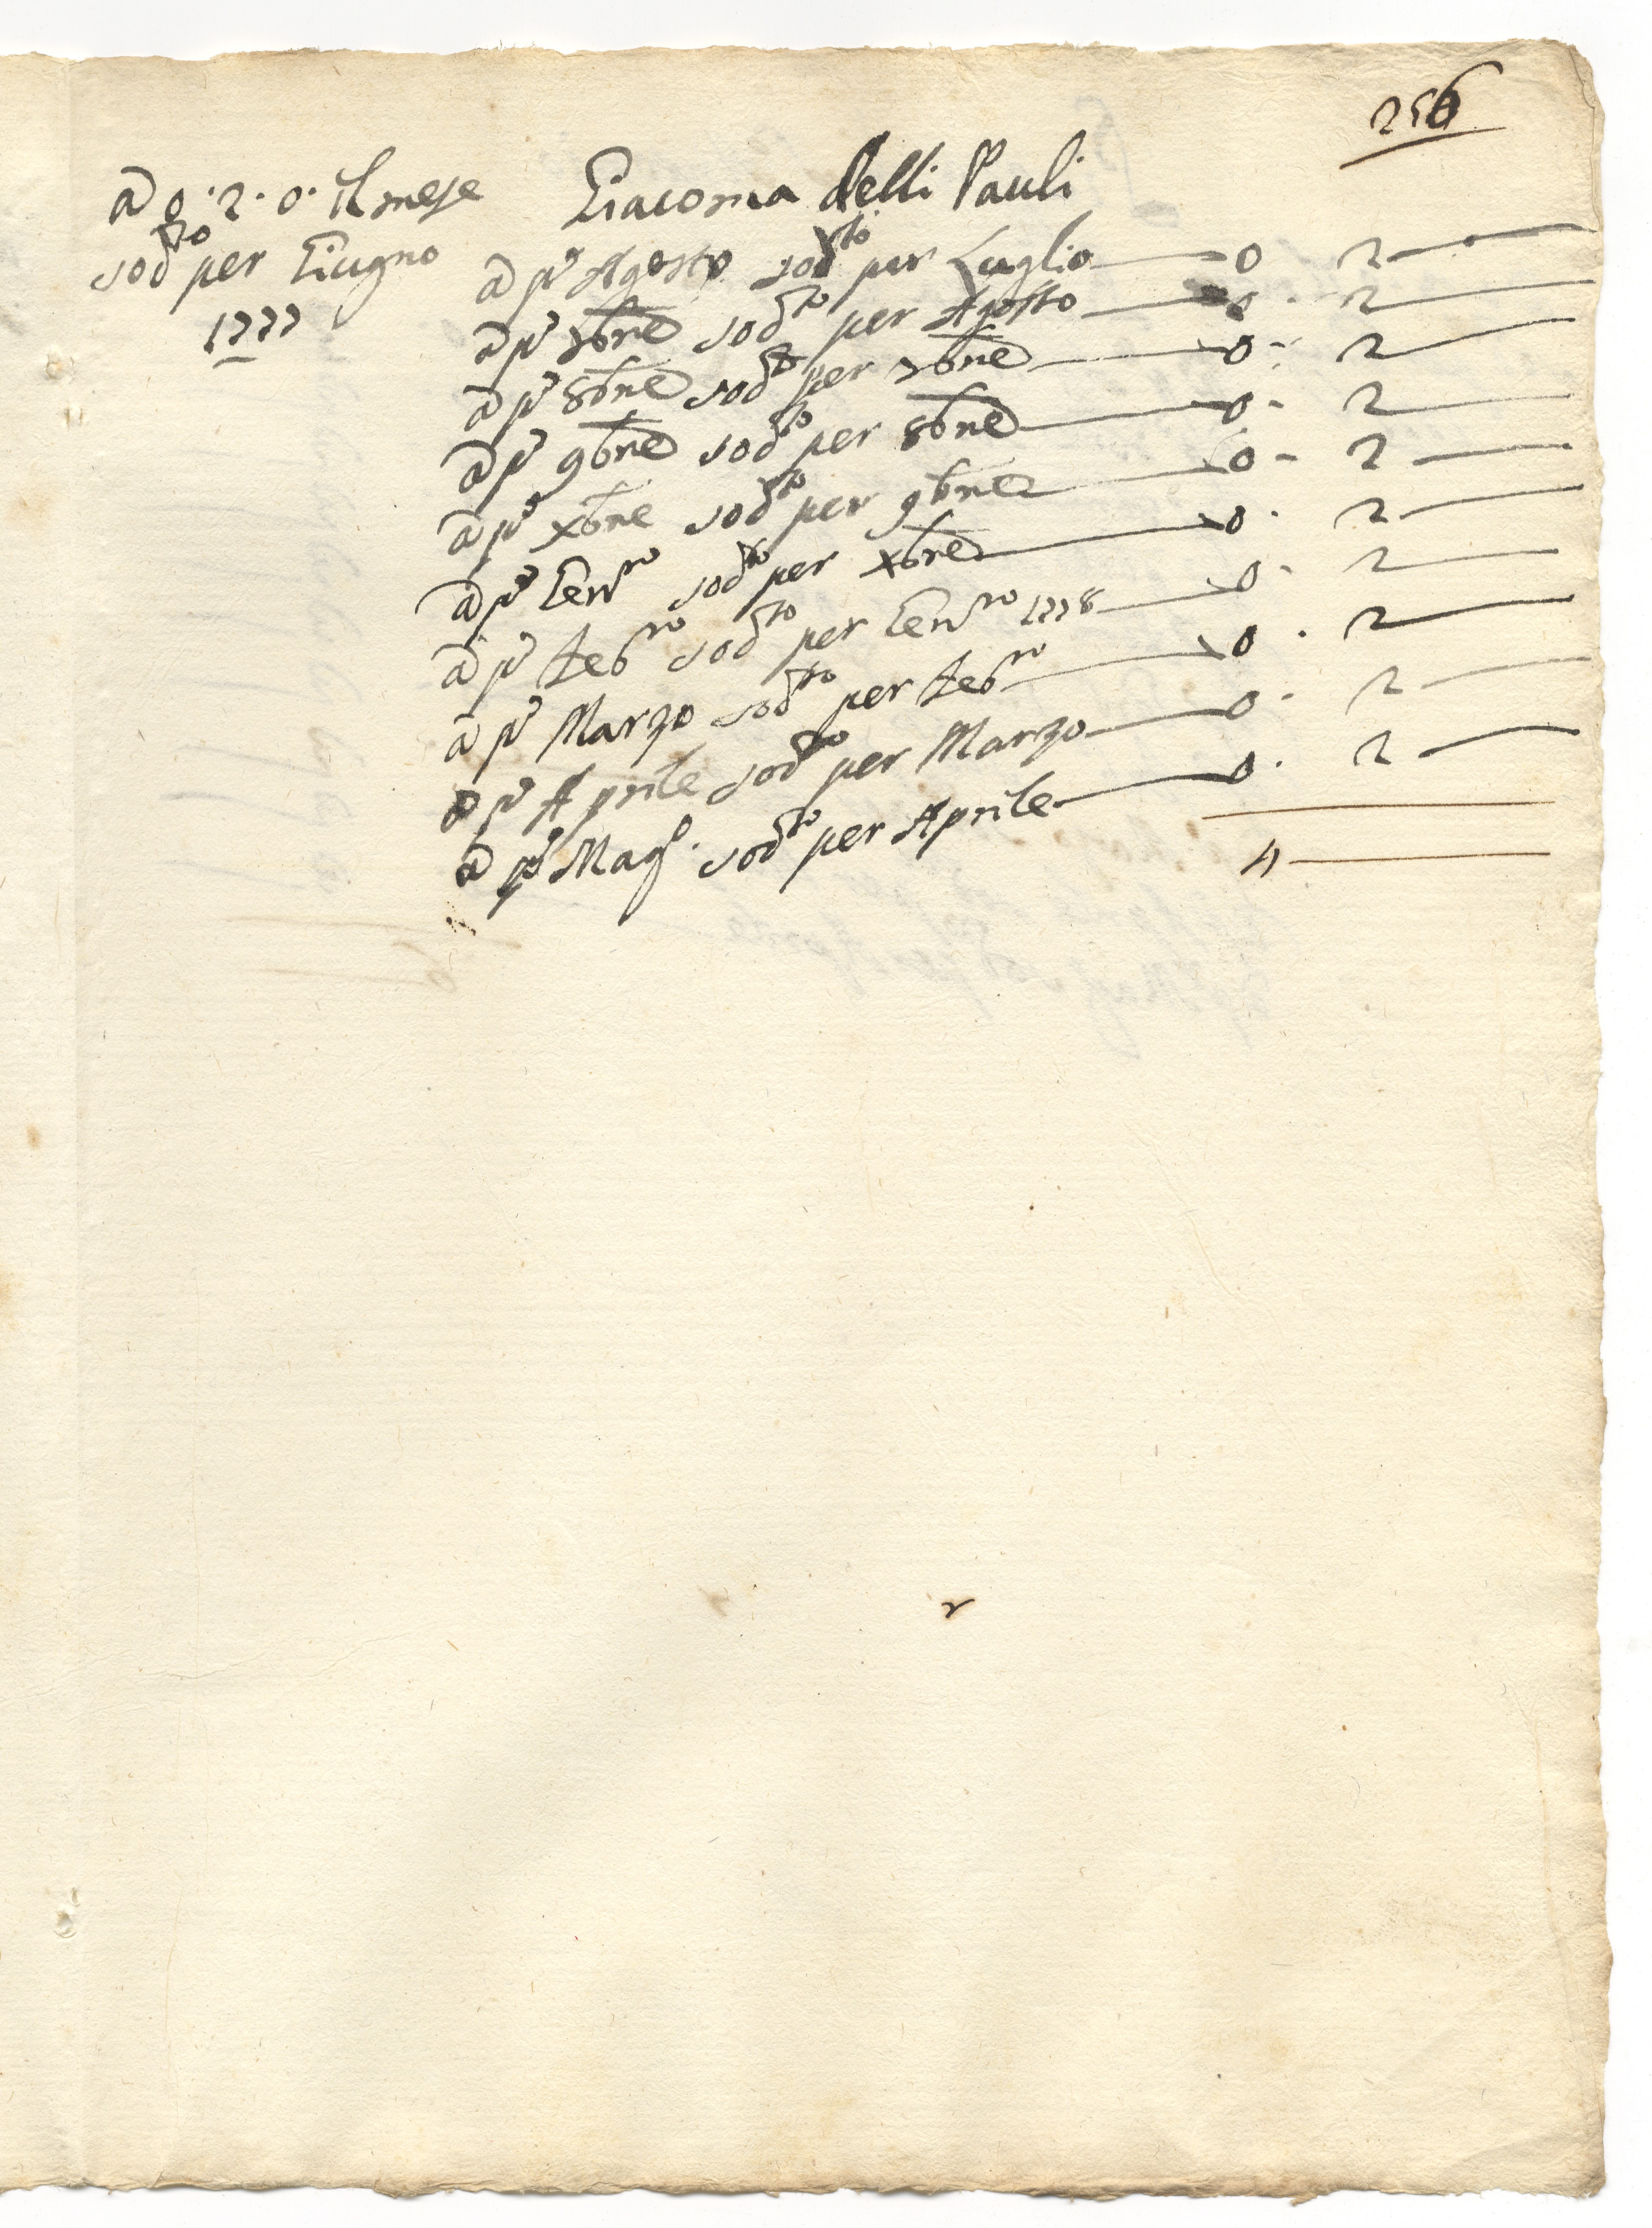 256
a 0. 2. 0. il mese
sodto per Giugno
1777
Giacoma delli Pauli
a po Agosto sodto per Luglio — 0 2 —
a po 7bre sodto per Agosto — 0 . 2 —
a po 8bre sodto per 7bre — 0 . 2 —
a po 9bre sodto per 8bre — 0 . 2 —
a po xbre sodto per 9bre — 0 . 2 —
a po Genro sodto per xbre — 0 . 2 —
a po Febro sodto per Genro 1778 — 0 . 2 —
a po Marzo sodto per Febro — 0 . 2 —
a po Aprile sodto per Marzo — 0 . 2 —
a po Mago. sodto per Aprile — 0 . 2 —
4 —